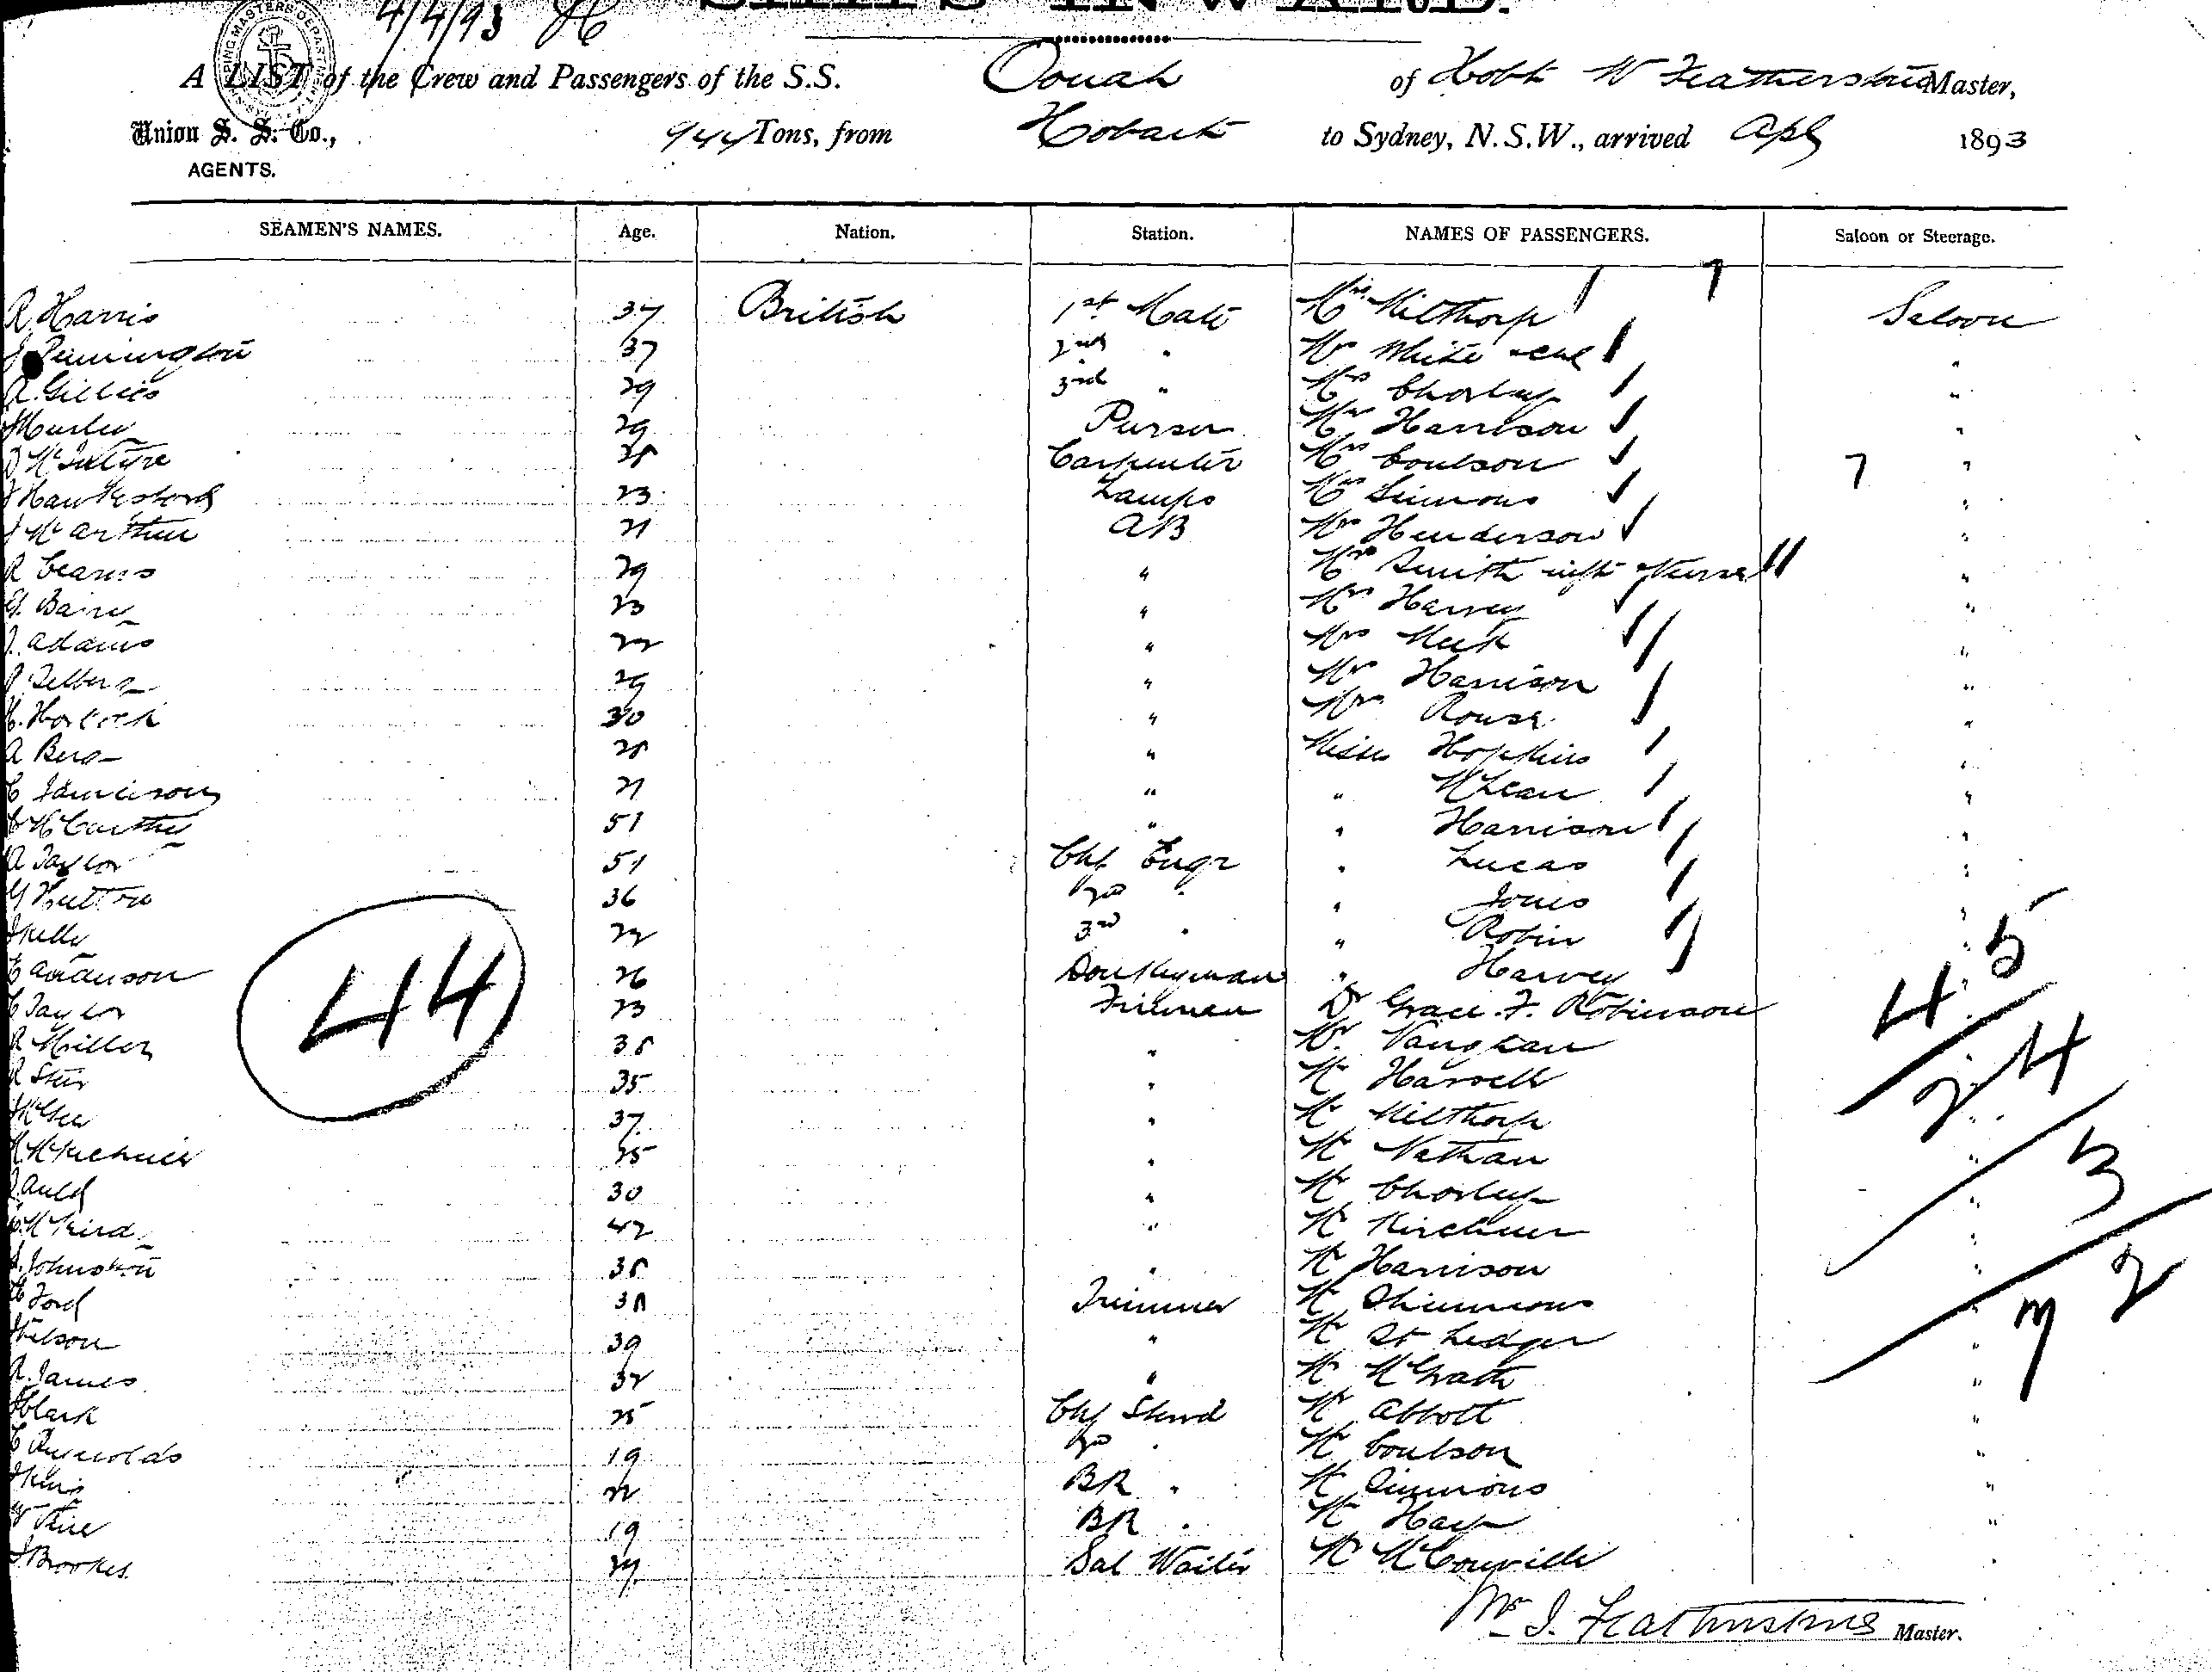 4/4/93
SHIPS INWARD.
A LIST of the Crew and Passengers of the S.S. Oonah of Hobt W Featherstone Master,
Union S. S. Co., 944 Tons, from Hobart to Sydney, N.S.W., arrived Apl 1893
AGENTS.
SEAMEN'S NAMES. Age. Nation. Station. NAMES OF PASSENGERS. Saloon or Steerage.
R. Harris 37 British 1st Mate Mrs Milthorp Saloon
Pennington 37 2nd " Mr White "
A. Gillies 29 3rd " Mrs Chorley "
29 Purser Mrs Harrison "
McIntyre Carpenter Mrs Coulson 7 "
Hawkesford 23 Lamps Mrs Simmons "
J McArthur 21 AB Mrs Henderson "
R Cearns 29 " Mrs Smith inft & Nurse "
Barry 23 " Mrs Harvey "
J. Adams 22 " Mrs Meek "
29 " Mrs Harrison "
H. 30 " Mrs Rouse "
A Berg " Misses Hopkins "
C Jamieson 21 " " McLean "
McCarthy 51 " " Harrison "
A Taylor 51 Chf Engr " Lucas "
Hutton 36 2nd " " Jones "
Kelly 22 3rd " " Robin "
44
26 Donkeyman " Harvey 45
C Taylor 23 Fireman Dr Grace F. Robinson
R Miller " Mr Vaughan 24
R 35 " Mr Harvell
McGee 37 " Mr Milthorp
25 " Mr Nathan 3
Auld 30 " Mr Chorley
42 " Mr Kirchner
J. Johnston " Mr Harrison 2
Ford Trimmer Mr Shimmons 7
39 " Mr St Ledger
R. James 32 " Mr McGrath
Clark 25 Chf Stewd Mr Abbott
C Reynolds 19 2nd " Mr Coulson
King 22 BR " Mr Simmons
19 BR " Mr Hay
J Brookes 29 Sal Waiter Mr McConville
Wm J. Featherstone Master.